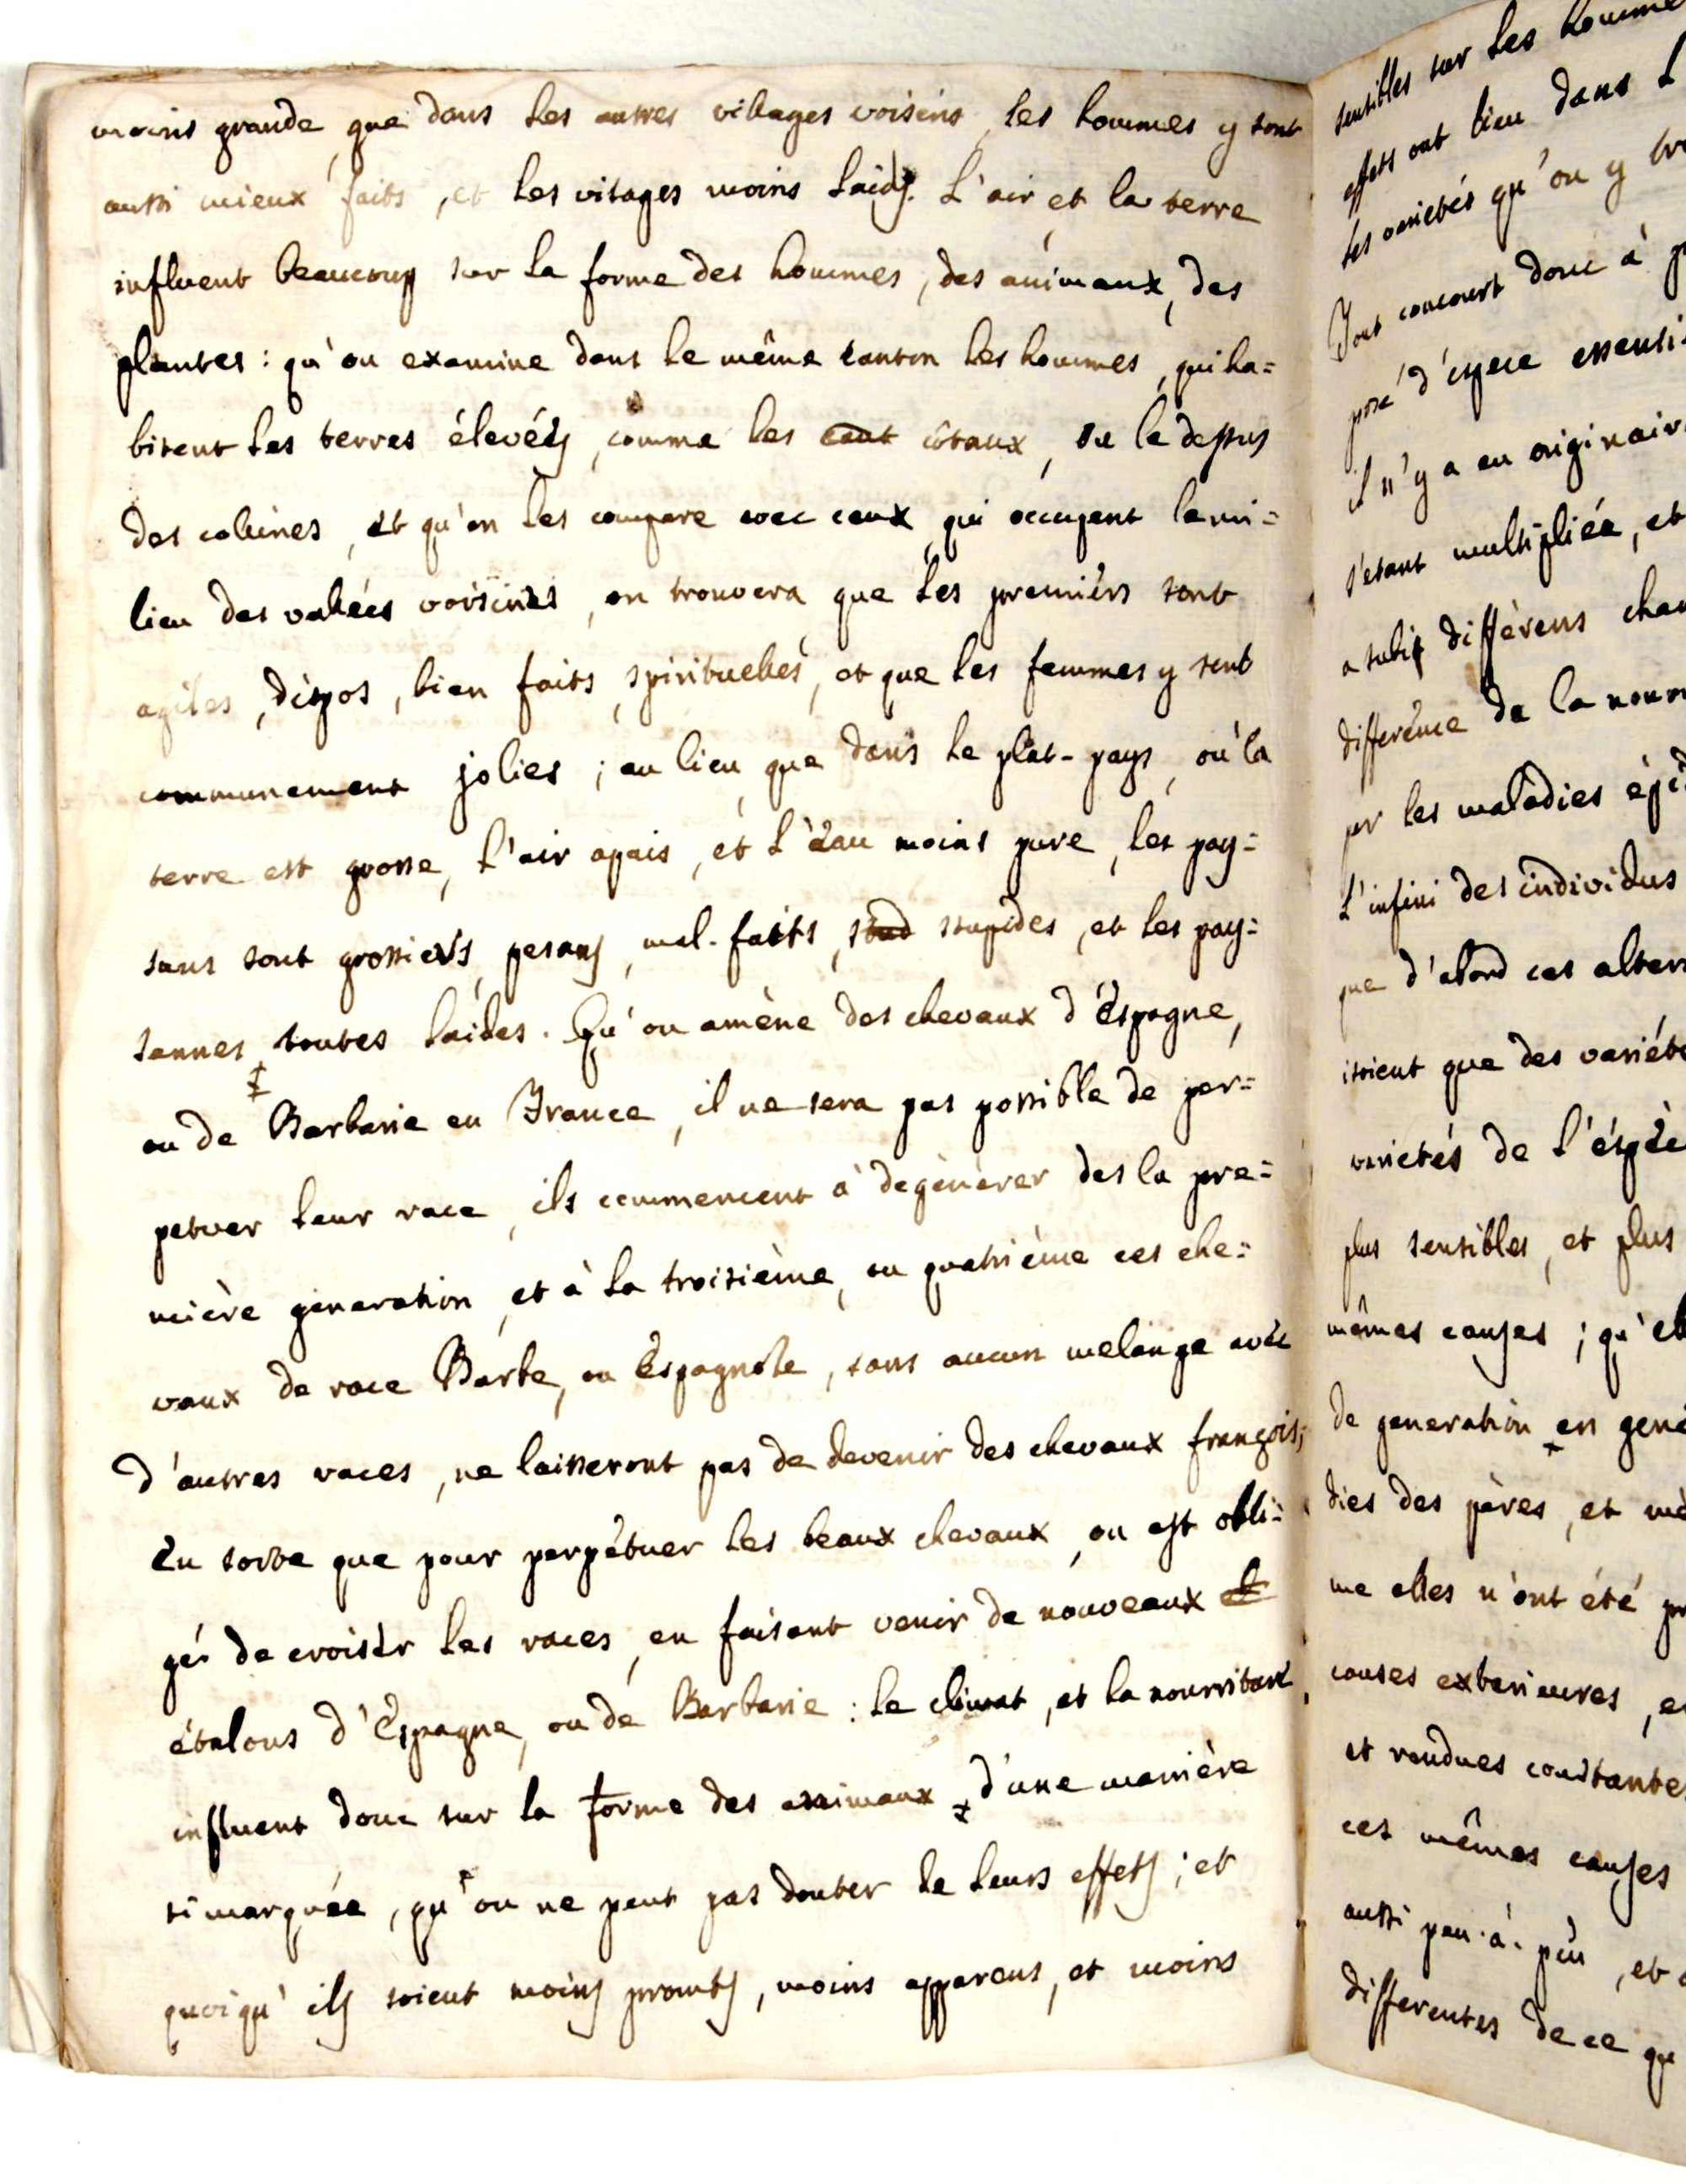 moins grande, que dans les autres villages voisins, les hommes y sont
aussi mieux faits, et les visages moins laids. L'air, et la terre
influent beaucoup sur la forme des hommes, des animaux, des
plantes : qu'on examine dans le même canton les hommes, qui ha=
bitent les terres élevées, comme les caut côtaux, ou le dessus
des colines, et qu'on les compare avec ceux, qui occupent le mi=
lieu des valées voisines, on trouvera, que les premièrs sont
agiles, dispos, bien faits, spirituelles, et que les femmes y sont
communement jolies ; au lieu, que dans le plat-pays, où la
terre est grosse, l'air apais, et l'eau moins pure, les pay=
sans sont grossiers, pesans, mal-faits, stud stupides, et les pay=
sannes toutes laides. Qu'on amène des chevaux d'Espagne,
ou de Barbarie en France, il ne sera pas possible de per=
petuer leur race, ils commencent à degènèrer des la pre=
mière generation, et à la troisième, ou quatrième ces che=
vaux de race Barbe, ou Espagnole, sans aucun melange avèc
d'autres races, ne laisseront pas de devenir des chevaux françois;
En sorte que pour perpétuer les beaux chevaux, on est obli=
gé de croisèr les races, en faisant venir de nouveaux et
étalons d'Espagne, ou de Barbarie : le climat, et la nourriture
influent donc sur la forme des animaux d'une manière
si marquée, qu'on ne peut pas douter de leurs effets ; et
quoiqu'ils soient moins promts, moins apparens, et moins
sensibles sur les homme
effets ont lieu dans l
les varietés qu'on y tro
Tout concourt donc à p
posé d'espece essenti
il n'y a eu originair
s'étant multipliée, et
a subit différens chan
différence de la nourr
par les maladies épid
l'infini des individus
que d'abord ces alter
etoient que des variéte
varietés de l'éspèce
plus sensibles, et plus
mêmes causes ; qu'el
de generation en gene
dies des pères, et mè
me elles n'ont été pr
causes exterieures, e
et rendues constante
ces mêmes causes
aussi peu-à-peu, et
differentes de ce qu